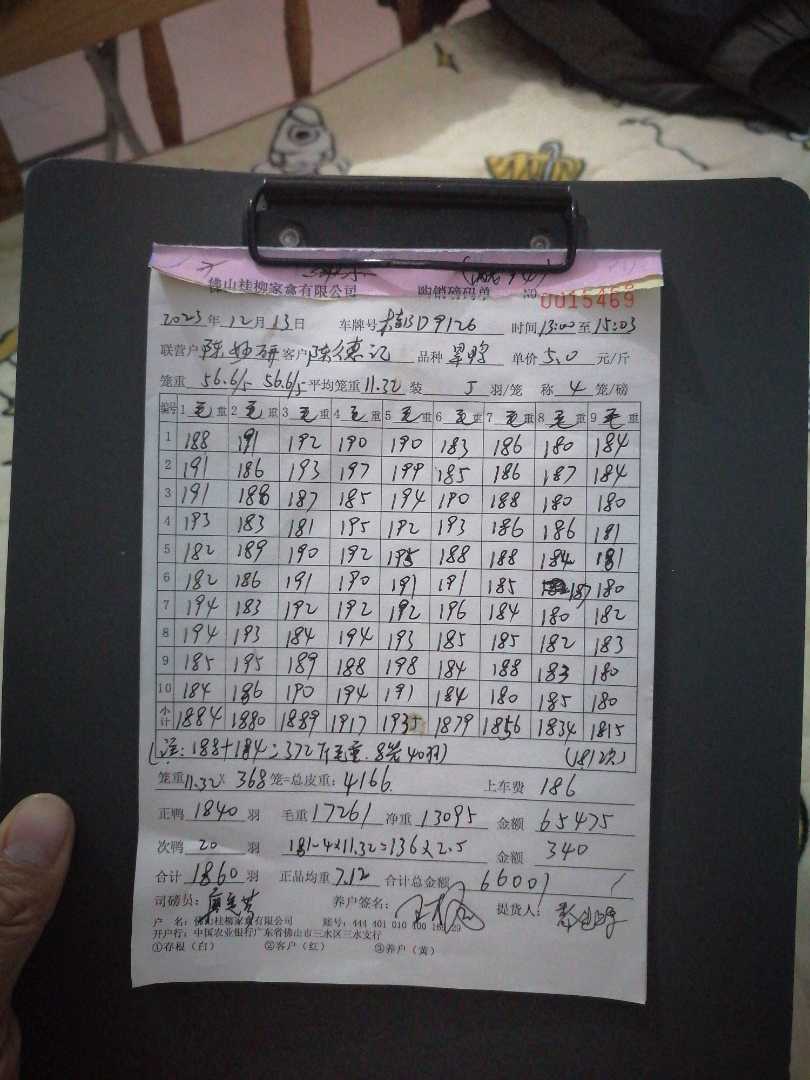 佛山桂柳家禽有限公司 购销磅码单 № 0015469
2023年12月13日 车牌号 桂BD9126 时间 13:00 至 15:03
联营户 陈 研 客户 陈德记 品种 单价 5.0 元/斤
笼重 56.6/5 56.6/5 平均笼重 11.32 装 5 羽/笼 称 4 笼/磅
编号 1毛重 2毛重 3毛重 4毛重 5毛重 6毛重 7毛重 8毛重 9毛重
1 188 191 192 190 190 183 186 180 184
2 191 186 193 197 199 185 186 187 184
3 191 188 187 185 194 190 188 180 180
4 193 183 181 195 192 193 186 186 181
5 182 189 190 192 195 188 188 184 181
6 182 186 191 190 191 191 185 187 180
7 194 183 192 192 192 196 184 180 182
8 194 193 184 194 193 185 185 182 183
9 185 195 189 188 198 184 188 183 180
10 184 186 190 194 191 184 180 185 180
小计 1884 1880 1889 1917 1935 1879 1856 1834 1815
(注: 188+184=372斤毛重.8笼40羽) (181次)
笼重 11.32 × 368 笼=总皮重: 4166. 上车费 186
正鸭 1840 羽 毛重 17261 净重 13095 金额 65475
次鸭 20 羽 181-4×11.32=136×2.5 金额 340
合计 1860 羽 正品均重 7.12 合计总金额 66001
司磅员: 养户签名: 提货人:
户 名: 佛山桂柳家禽有限公司 账号: 444 401 010 400 29
开户行: 中国农业银行广东省佛山市三水区三水支行
①存根(白) ②客户(红) ③养户(黄)